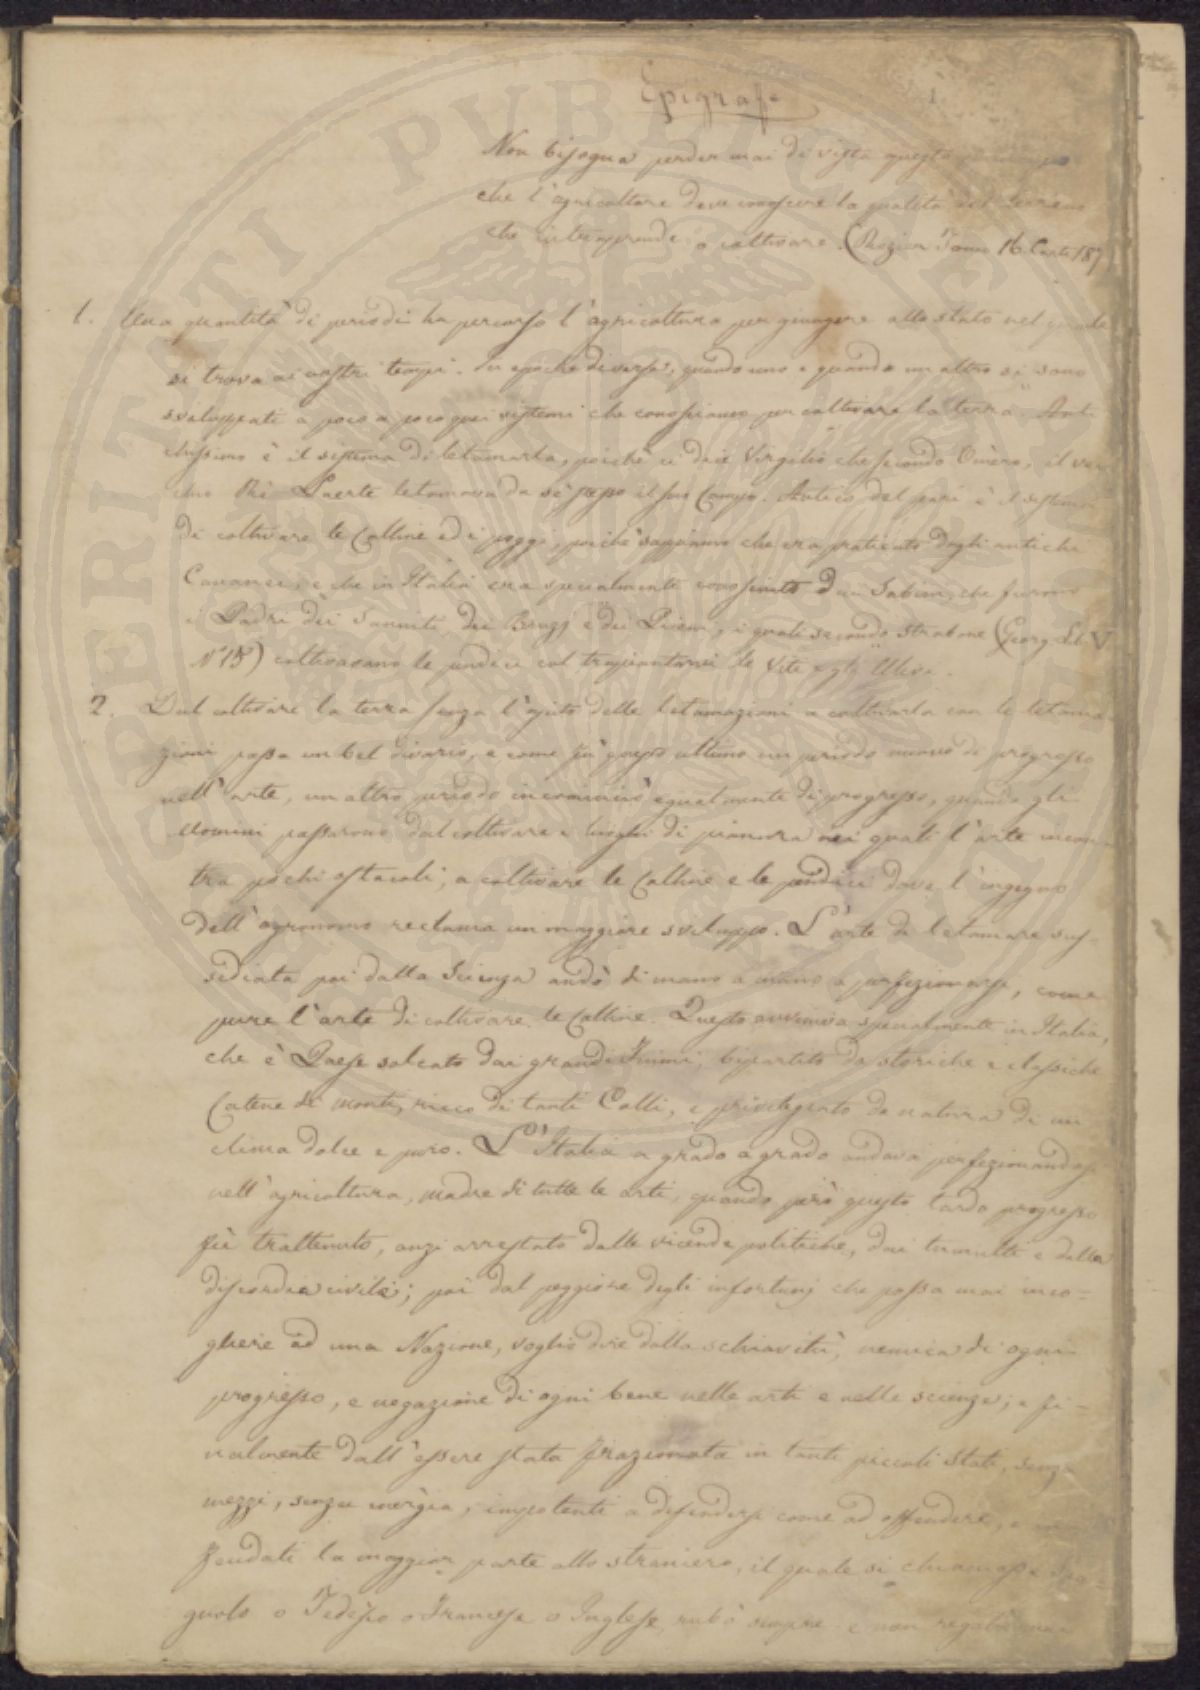 Epigrafe
1
Non bisogna perder mai di vista questo
che l'agricoltore deve conoscere la qualità del terreno
che intraprende a coltivare. (Rozier Tomo 16. Carte 187
1. Una quantità di periodi ha percorso l'agricoltura per giungere allo stato nel quale
si trova ai nostri tempi. In epoche diverse, quando uno e quando un altro si sono
sviluppati a poco a poco quei sistemi che conosciamo per coltivare la terra. Anti
chissimo è il sistema di letamarla, poichè ci dice Virgilio che secondo Omero, il vec
chio Rè Laerte letamava da sè stesso il suo Campo. Antico del pari è il sistema
di coltivare le Colline ed i poggi, poichè sappiamo che era praticato dagli antichi
Cananei, e che in Italia era specialmente conosciuto dai Sabini, che furono
i Padri dei Sanniti, dei Bruzj e dei Piceni, i quali secondo Strabone (Georg. Lib. V.
N° 15) coltivavano le pendici col trapiantarvi le Viti e gli Ulivi.
2. Dal coltivare la terra senza l'ajuto delle letamazioni a coltivarla con le letama
zioni passa un bel divario, e come fù questo ultimo un periodo nuovo di progresso
nell'arte, un altro periodo incominciò egualmente di progresso, quando gli
uomini passarono dal coltivare i luoghi di pianura nei quali l'arte incon
tra pochi ostacoli, a coltivare le Colline e le pendici dove l'ingegno
dell'agronomo reclama un maggiore sviluppo. L'arte di letamare sus-
sidiata poi dalla Scienza andò di mano a mano a perfezionarsi, come
pure l'arte di coltivare le Colline. Questo avveniva specialmente in Italia,
che è Paese solcato dai grandi Fiumi, bipartito da storiche e classiche
Catene di monti, ricco di tanti Colli, e privilegiato da natura di un
clima dolce e puro. L'Italia a grado a grado andava perfezionandosi
nell'agricoltura, madre di tutte le arti, quando però questo tardo progresso
fù trattenuto, anzi arrestato dalle vicende politiche, dai tumulti e dalla
discordia civile; poi dal peggiore degli infortunj che possa mai inco-
gliere ad una Nazione, voglio dire dalla schiavitù, nemica di ogni
progresso, e negazione di ogni bene nelle arti e nelle scienze; e fi-
nalmente dall'essere stata frazionata in tanti piccoli Stati, senza
mezzi, senza energia, impotenti a difendersi come ad offendere, e
feudati la maggior parte allo straniero, il quale si chiamasse Spa-
gnolo o Tedesco o Francese o Inglese, rubò sempre e non regalò mai